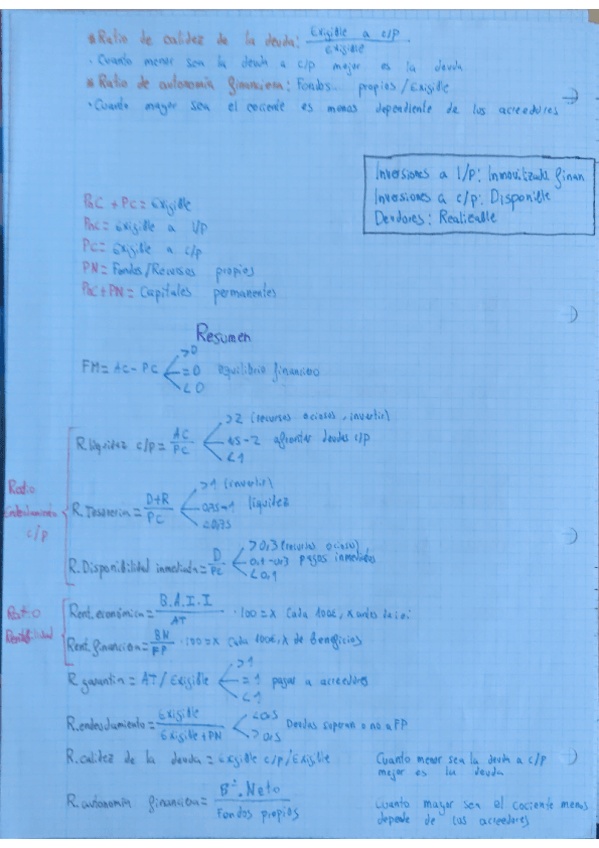 * Ratio de calidez de la deuda: Exigible a c/p / Exigible
· Cuanto menor sea la deuda a c/p mejor es la deuda
* Ratio de autonomía financiera: Fondos.. propios / Exigible
· Cuanto mayor sea el cociente es menos dependiente de los acreedores
Inversiones a l/p: Inmovilizado finan
Inversiones a c/p: Disponible
Deudores: Realizable
PnC + PC = Exigible
PnC = Exigible a l/p
PC = Exigible a c/p
PN = Fondos/Recursos propios
PnC + PN = Capitales permanentes
Resumen
FM = AC - PC
>0
=0 equilibrio financiero
<0
Ratio
c/p
R. liquidez c/p = AC / PC
>2 (recursos ociosos, invertir)
1,5 - 2 afrontar deudas c/p
<1
R. Tesorería = D+R / PC
>1 (invertir)
0,75-1 liquidez
<0,75
R. Disponibilidad inmediata = D / PC
>0,3 (recursos ociosos)
0,1 - 0,3 pagos inmediatos
<0,1
Ratio
Rentabilidad
Rent. económica = B.A.I.I / AT · 100 = x Cada 100€, x antes de i.i
Rent. financiera = BN / FP · 100 = x Cada 100€, x de beneficios
R. garantía = AT / Exigible
>1
=1 pagar a acreedores
<1
R. endeudamiento = Exigible / Exigible + PN
<0,5
>0,5
Deudas superan o no a FP
R. calidez de la deuda = Exigible c/p / Exigible
Cuanto menor sea la deuda a c/p
mejor es la deuda
R. autonomía financiera = Bº. Neto / Fondos propios
Cuanto mayor sea el cociente menos
depende de los acreedores